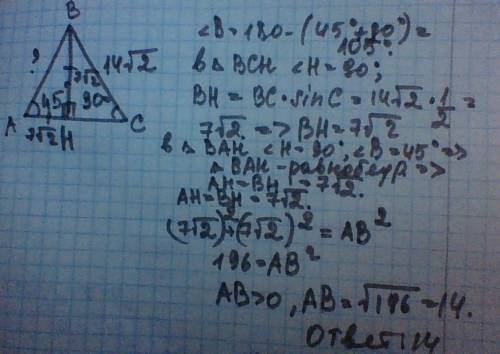 B
?
14√2
7√2
45°
30°
A
7√2
H
C
∠B = 180 - (45° + 30°) =
105°.
В △ BCH ∠H = 90°;
BH = BC · sin C = 14√2 · 1/2 =
7√2. => BH = 7√2
В △ BAH ∠H = 90°, ∠B = 45° =>
△ BAH - равнобедр =>
AH = BH = 7√2.
AH = BH = 7√2.
(7√2)² + (7√2)² = AB²
196 = AB²
AB > 0, AB = √196 = 14.
Ответ: 14